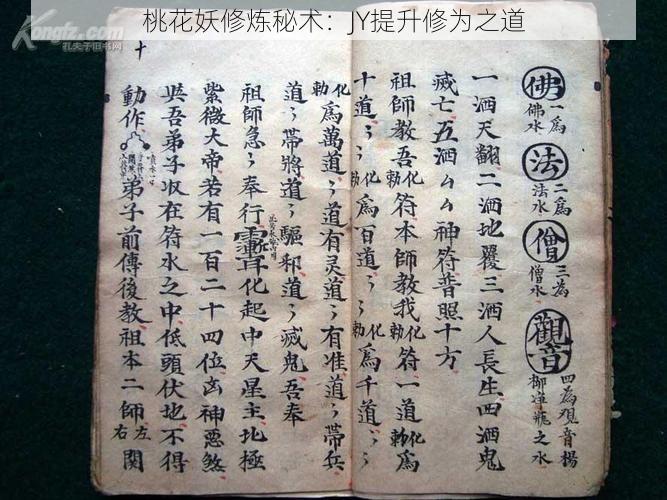 桃花妖修炼秘术：JY提升修为之道
佛 一爲佛水
法 二爲法水
僧 三爲僧水
觀音 四爲观音楊柳罈瓶之水
一洒天翻二洒地覆三洒人長生四洒鬼
滅亡五洒ムム神符普照十方
祖師教吾勅化符本師教我勅化符一道勅化爲
十道〻勅化爲百道〻勅化爲千道〻
勅化爲萬道〻有灵道〻有准道〻帶兵
道〻帶將道〻驅邪道〻滅鬼吾奉
祖師急〻奉行 化起中天星主北極
紫微大帝若有一百二十四位玄神惡煞
與吾弟子收在符水之中低頭伏地不得
動作 弟子前傳後教祖本二師左右関
十
孔夫子旧书网